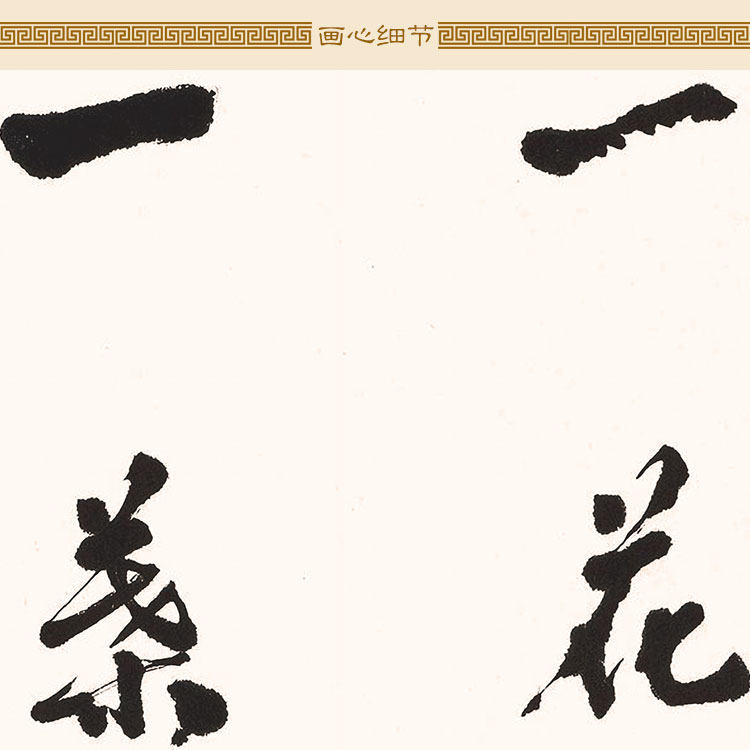 画心细节
一花
一葉